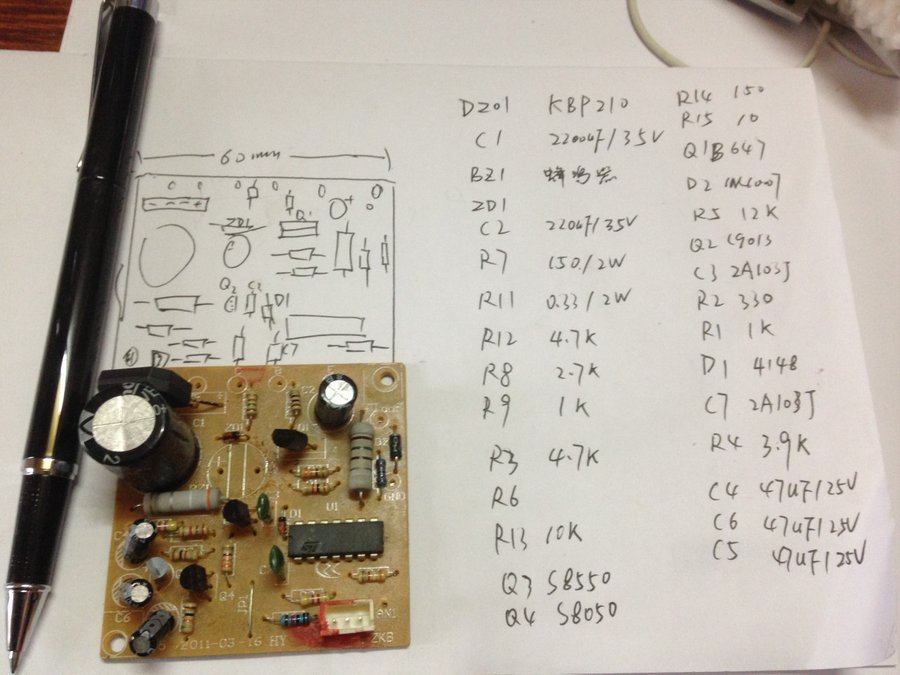 60mm
ZD1
Q1
Q2 C2 D1
DZ01 KBP210
C1 2200uF/35V
BZ1 蜂鸣器
ZD1
C2 220uF/35V
R7 150/2W
R11 0.33/2W
R12 4.7K
R8 2.7K
R9 1K
R3 4.7K
R6
R13 10K
Q3 S8550
Q4 S8050
R14 150
R15 10
Q1B647
D2 1N4007
R5 12K
Q2 C9013
C3 2A103J
R2 330
R1 1K
D1 4148
C7 2A103J
R4 3.9K
C4 47uF/25V
C6 47uF/25V
C5 47uF/25V
C1
C2
ZD1
GND
D1
U1
Q4
JP1
C6
2011-03-16 HY
ZKB